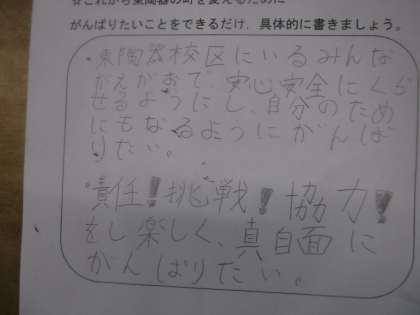 ☆これから東陶器の町を変えるために
がんばりたいことをできるだけ，具体的に書きましょう。
・東陶器校区にいるみんな
がえがおで、安心安全にくら
せるようにし、自分のため
にもなるようにがんば
りたい。
・責任!挑戦!協力!
をし楽しく、真面目に
がんばりたい。